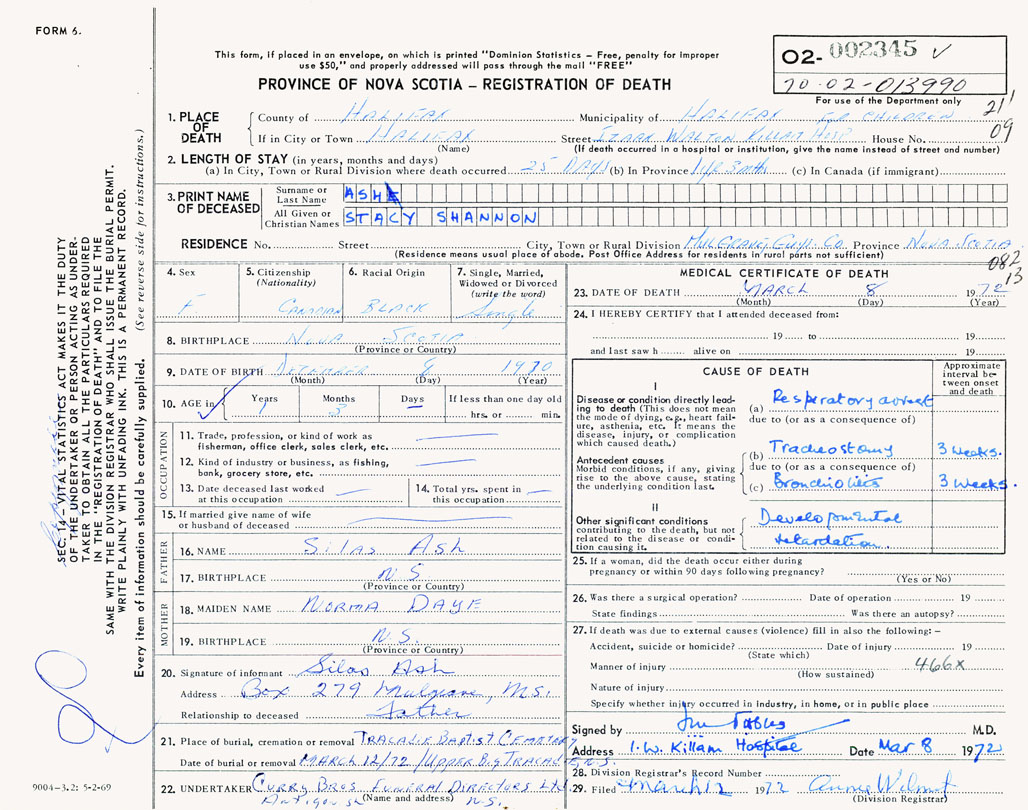 FORM 6.
This form, if placed in an envelope, on which is printed "Dominion Statistics – Free, penalty for improper
use $50," and properly addressed will pass through the mail "FREE"
PROVINCE OF NOVA SCOTIA – REGISTRATION OF DEATH
02-002345 ✓
70-02-013990
For use of the Department only
21'
09
1. PLACE OF DEATH
County of HALIFAX Municipality of HALIFAX FOR CHILDREN
If in City or Town HALIFAX Street IZAAK WALTON KILLAM HOSP House No.
(Name) (If death occurred in a hospital or institution, give the name instead of street and number)
2. LENGTH OF STAY (in years, months and days)
(a) In City, Town or Rural Division where death occurred 25 DAYS (b) In Province 1 yr 3 mths (c) In Canada (if immigrant)
3. PRINT NAME OF DECEASED
Surname or Last Name ASHE
All Given or Christian Names STACY SHANNON
RESIDENCE No. Street City, Town or Rural Division MULGRAVE, GUY. CO. Province NOVA SCOTIA
(Residence means usual place of abode. Post Office Address for residents in rural parts not sufficient)
082
13
4. Sex
F
5. Citizenship
(Nationality)
CANADIAN
6. Racial Origin
BLACK
7. Single, Married,
Widowed or Divorced
(write the word)
Single
8. BIRTHPLACE NOVA SCOTIA
(Province or Country)
9. DATE OF BIRTH DECEMBER 8 1970
(Month) (Day) (Year)
10. AGE in Years Months Days If less than one day old
1 3 hrs. or min.
11. Trade, profession, or kind of work as
fisherman, office clerk, sales clerk, etc.
12. Kind of industry or business, as fishing,
bank, grocery store, etc.
OCCUPATION
13. Date deceased last worked
at this occupation
14. Total yrs. spent in
this occupation.
15. If married give name of wife
or husband of deceased
FATHER
16. NAME SILAS ASH
17. BIRTHPLACE N.S.
(Province or Country)
MOTHER
18. MAIDEN NAME NORMA DAYE
19. BIRTHPLACE N.S.
(Province or Country)
20. Signature of informant Silas Ash
Address Box 279 Mulgrave, N.S.
Relationship to deceased Father
21. Place of burial, cremation or removal TRACADIE BAPTIST CEMETARY
Date of burial or removal MARCH 12/72 / UPPER BIG TRACADIE, N.S.
22. UNDERTAKER CURRY BROS FUNERAL DIRECTORS LTD.
(Name and address)
Antigonish N.S.
MEDICAL CERTIFICATE OF DEATH
23. DATE OF DEATH MARCH 8 1972
(Month) (Day) (Year)
24. I HEREBY CERTIFY that I attended deceased from:
19 to 19
and last saw h alive on 19
CAUSE OF DEATH
Approximate
interval be-
tween onset
and death
I
Disease or condition directly lead-
ing to death (This does not mean
the mode of dying, e.g., heart fail-
ure, asthenia, etc. It means the
disease, injury, or complication
which caused death.)
(a) Respiratory arrest
due to (or as a consequence of)
Antecedent causes
Morbid conditions, if any, giving
rise to the above cause, stating
the underlying condition last.
(b) Tracheostomy 3 weeks.
due to (or as a consequence of)
(c) Bronchiolitis 3 weeks.
II
Other significant conditions
contributing to the death, but not
related to the disease or condi-
tion causing it.
Developmental
retardation.
25. If a woman, did the death occur either during
pregnancy or within 90 days following pregnancy?
(Yes or No)
26. Was there a surgical operation? Date of operation 19
State findings Was there an autopsy?
27. If death was due to external causes (violence) fill in also the following: –
Accident, suicide or homicide? Date of injury 19
(State which)
Manner of injury 466X
(How sustained)
Nature of injury
Specify whether injury occurred in industry, in home, or in public place
Signed by M.D.
Address I.W. Killam Hospital Date Mar 8 1972
28. Division Registrar's Record Number
29. Filed March 12 1972
(Division Registrar)
SEC. 14 – VITAL STATISTICS ACT MAKES IT THE DUTY
OF THE UNDERTAKER OR PERSON ACTING AS UNDER-
TAKER TO OBTAIN ALL THE PARTICULARS REQUIRED
IN THE "REGISTRATION OF DEATH" AND TO FILE THE
SAME WITH THE DIVISION REGISTRAR WHO SHALL ISSUE THE BURIAL PERMIT.
WRITE PLAINLY WITH UNFADING INK. THIS IS A PERMANENT RECORD.
Every item of information should be carefully supplied. (See reverse side for instructions.)
9004-3.2: 5-2-69